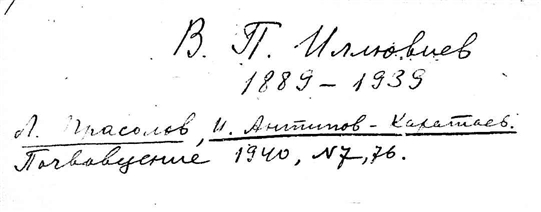 В. П. Иллювиев
1889 – 1939
Л. Прасолов, И. Антипов - Каратаев.
Почвоведение 1940, N7, 76.